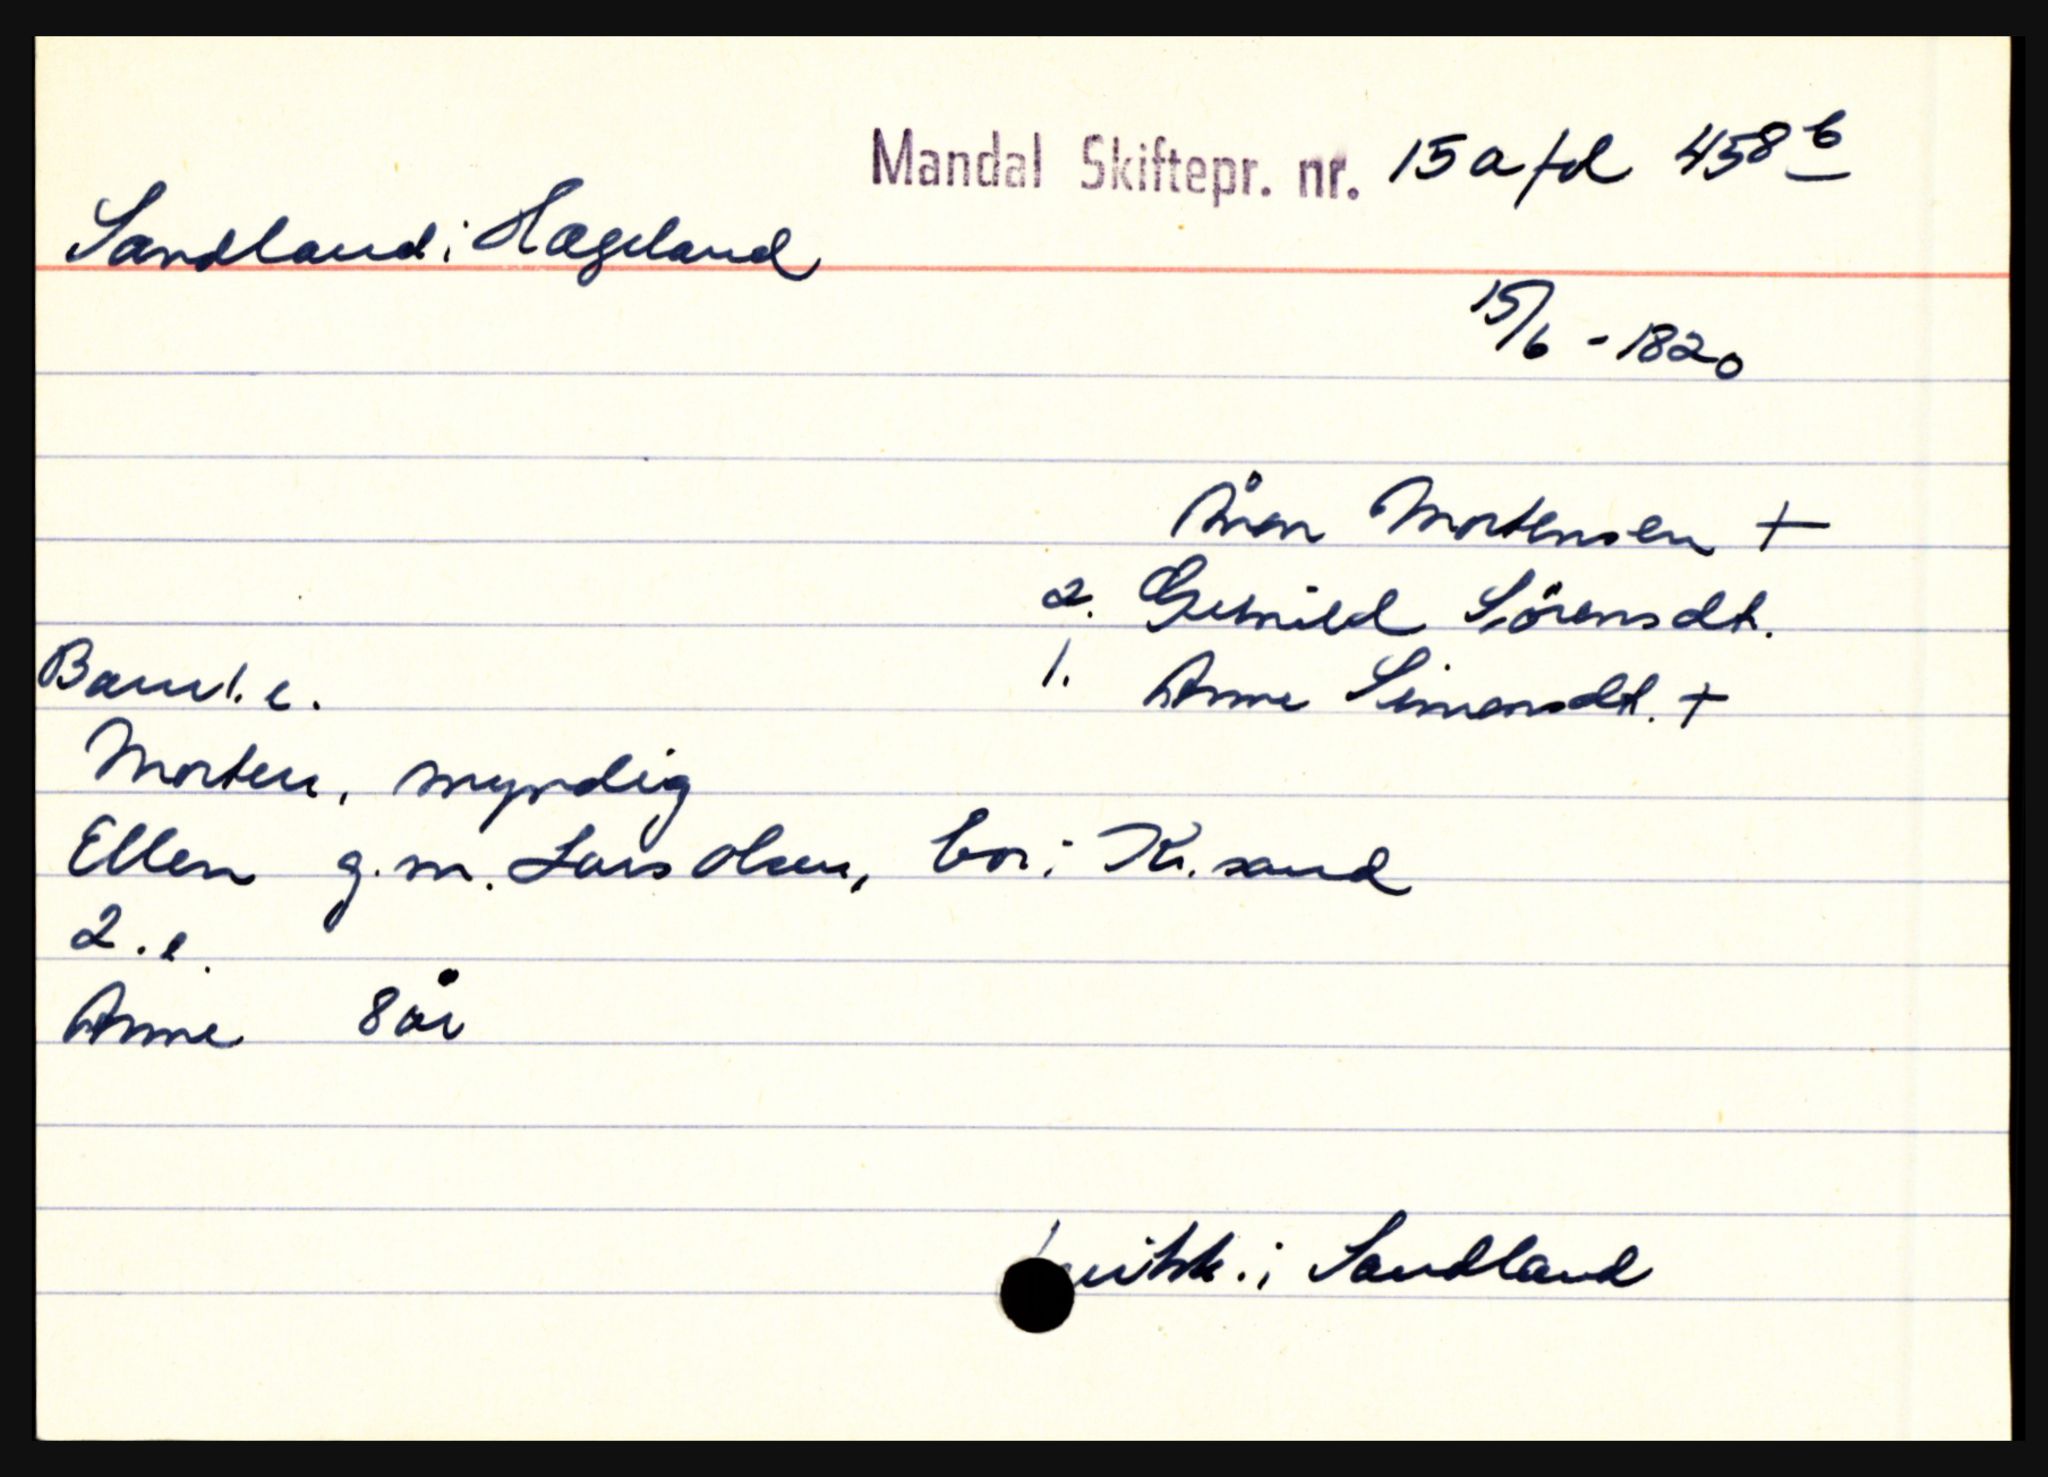 Mandal Skiftepr. nr. 15a fol 458b
Sandland i Hægeland
15/6 - 1820
Ånon Mortensen +
2. Gunild Sörensdt.
1. Anne Simensdt. +
Barn 1. e.
Morten, myndig
Ellen g.m. Lars Olsen, bor i Kr.sand
2. e.
Anne 8 år
i Sandland